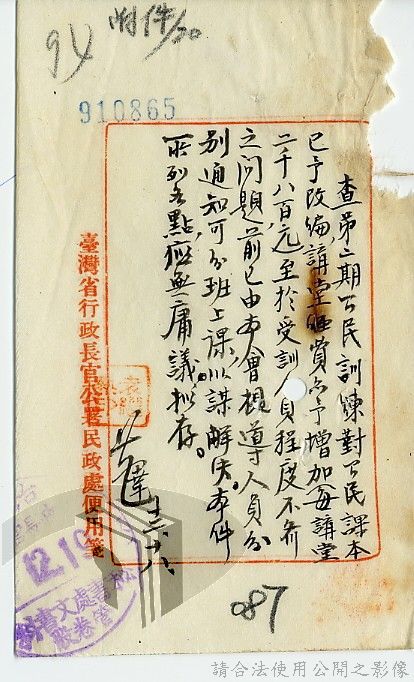 94
附件/20
910865
查第二期公民訓練對公民課本
已予改編,講堂經費亦予增加(每講堂
二千八百元)至於受訓人員程度不齊
之問題,前已由本會視導人員分
別通知可分班上課,以謀解決。本件
所列各點,應無庸議。擬存。
十二、十八
臺灣省行政長官公署民政處便用箋
12.19
087
請合法使用公開之影像